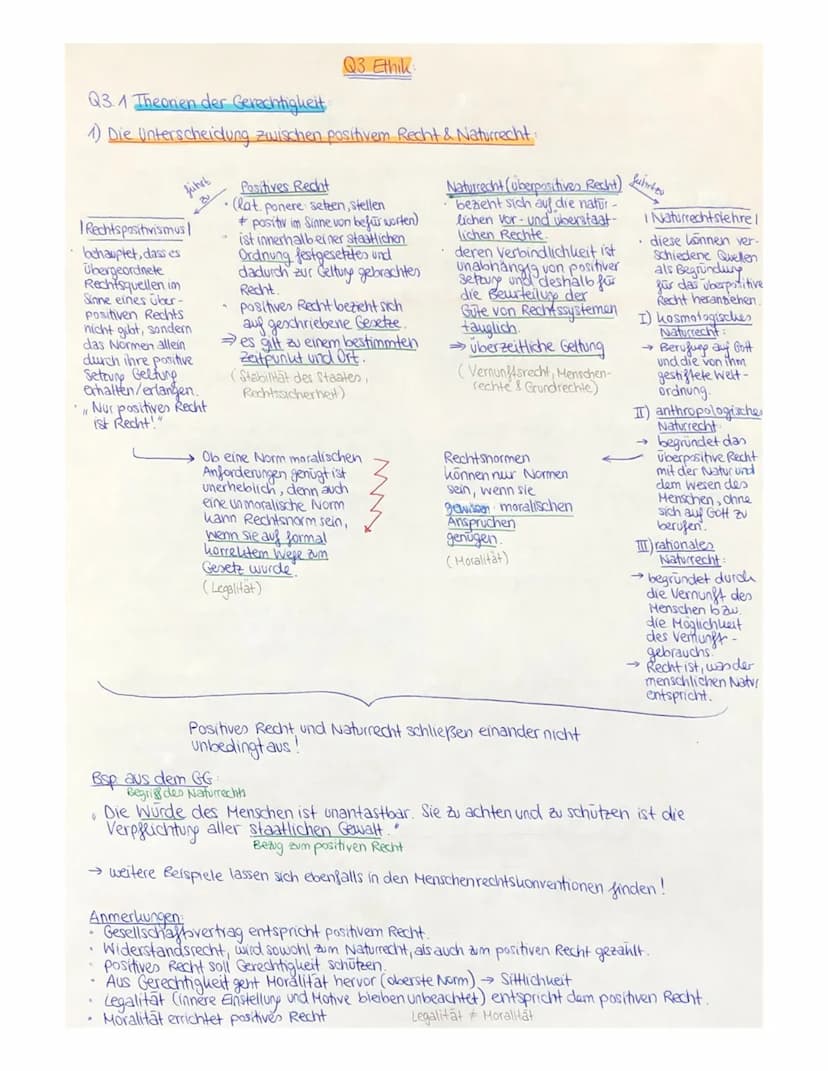 Q3 Ethik:
Q3.1 Theorien der Gerechtigkeit
1) Die Unterscheidung zwischen positivem Recht & Naturrecht:
führt zu
|Rechtspositivismus|
· behauptet, dass es
übergeordnete
Rechtsquellen im
Sinne eines über-
positiven Rechts
nicht gibt, sondern
das Normen allein
durch ihre positive
Setzung Geltung
erhalten/erlangen.
· „Nur positives Recht
ist Recht!"
Positives Recht
· (lat. ponere: setzen, stellen
≠ positiv im Sinne von befürworten)
· ist innerhalb einer staatlichen
Ordnung festgesetztes und
dadurch zur Geltung gebrachtes
Recht.
· positives Recht bezieht sich
auf geschriebene Gesetze.
⇒ es gilt zu einem bestimmten
Zeitpunkt und Ort.
(Stabilität des Staates,
Rechtssicherheit)
Naturrecht (überpositives Recht)
· bezieht sich auf die natür-
lichen Vor- und überstaat-
lichen Rechte.
· deren Verbindlichkeit ist
unabhängig von positiver
Setzung und deshalb für
die Beurteilung der
Güte von Rechtssystemen
tauglich.
⇒ überzeitliche Geltung
(Vernunftsrecht, Menschen-
rechte & Grundrechte)
|Naturrechtslehre|
· diese können ver-
schiedene Quellen
als Begründung
für das überpositive
Recht heranziehen.
I) kosmologisches
Naturrecht:
→ Berufung auf Gott
und die von ihm
gestiftete Welt-
ordnung.
II) anthropologisches
Naturrecht:
→ begründet das
überpositive Recht
mit der Natur und
dem Wesen des
Menschen, ohne
sich auf Gott zu
berufen.
III) rationales
Naturrecht:
→ begründet durch
die Vernunft des
Menschen bzw.
die Möglichkeit
des Vernunft-
gebrauchs.
→ Recht ist, was der
menschlichen Natur
entspricht.
→ Ob eine Norm moralischen
Anforderungen genügt ist
unerheblich, denn auch
eine unmoralische Norm
kann Rechtsnorm sein,
wenn sie auf formal
korrektem Wege zum
Gesetz wurde.
(Legalität)
Rechtsnormen
können nur Normen
sein, wenn sie
gewissen moralischen
Ansprüchen
genügen.
(Moralität)
Positives Recht und Naturrecht schließen einander nicht
unbedingt aus!
Bsp aus dem GG:
Begriff des Naturrechts
„Die Würde des Menschen ist unantastbar. Sie zu achten und zu schützen ist die
Verpflichtung aller staatlichen Gewalt."
Bezug zum positiven Recht
→ weitere Beispiele lassen sich ebenfalls in den Menschenrechtskonventionen finden!
Anmerkungen:
· Gesellschaftsvertrag entspricht positivem Recht.
· Widerstandsrecht, wird sowohl zum Naturrecht, als auch zum positiven Recht gezählt.
· positives Recht soll Gerechtigkeit schützen.
· Aus Gerechtigkeit geht Moralität hervor (oberste Norm) → Sittlichkeit
· Legalität (innere Einstellung und Motive bleiben unbeachtet) entspricht dem positiven Recht.
· Moralität errichtet positives Recht
Legalität ≠ Moralität